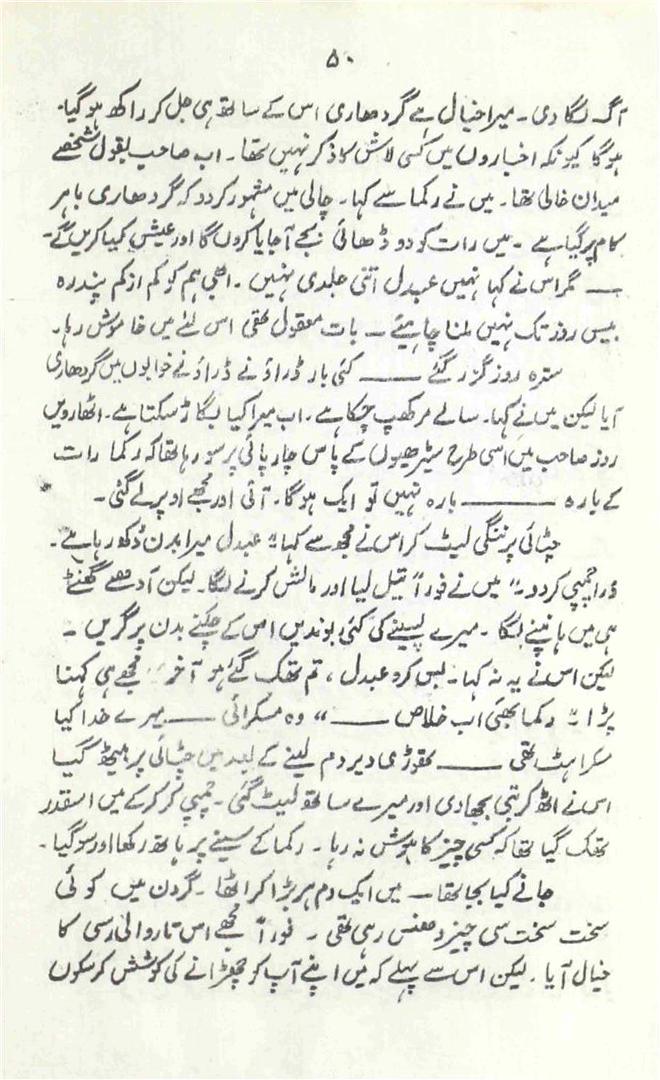 ۵۰
آگ لگا دی۔ میرا خیال ہے گردھاری اس کے ساتھ ہی جل کر راکھ ہو گیا۔
ہو گا کیونکہ اخباروں میں کسی لاش کا ذکر نہیں تھا۔ اب صاحب بقول شخصے
میدان خالی تھا۔ میں نے رکما سے کہا۔ چالی میں مشہور کردو کہ گردھاری باہر
کام پر گیا ہے ۔ میں رات کو دو ڈھائی بجے آ جایا کروں گا اور عیش کیا کریں گے۔
— مگر اس نے کہا نہیں عبدل اتنی جلدی نہیں ۔ ابھی ہم کو کم از کم پندرہ
بیس روز تک نہیں ملنا چاہیئے — بات معقول تھی اس لئے میں خاموش رہا۔
سترہ روز گزر گئے —— کئی بار ڈراؤنے ڈراؤنے خوابوں میں گردھاری
آیا لیکن میں نے کہا۔ سالے مر کھپ چکا ہے۔ اب میرا کیا بگاڑ سکتا ہے۔ اٹھارویں
روز صاحب میں اسی طرح سیڑھیوں کے پاس چارپائی پر سو رہا تھا کہ رکما رات
کے بارہ —— بارہ نہیں تو ایک ہو گا۔ آئی اور مجھے اوپر لے گئی ۔
چٹائی پر ننگی لیٹ کر اس نے مجھ سے کہا " عبدل میرا بدن دُکھ رہا ہے۔
ذرا چمپی کر دو۔" میں نے فوراً تیل لیا اور مالش کرنے لگا۔ لیکن آدھے گھنٹے
ہی میں ہانپنے لگا ۔ میرے پسینے کی کئی بوندیں اس کے چکنے بدن پر گریں ۔
لیکن اس نے یہ نہ کہا۔ بس کرو عبدل ، تم تھک گئے ہو آخر مجھے ہی کہنا
پڑا " رکما بھئی اب خلاص —— " وہ مسکرائی —— میرے خدا کیا
مسکراہٹ تھی —— تھوڑی دیر دم لینے کے بعد میں چٹائی پر بیٹھ گیا
اس نے اٹھ کر بتی بجھا دی اور میرے ساتھ لیٹ گئی۔ چمپی کر کر کے میں اسقدر
تھک گیا تھا کہ کسی چیز کا ہوش نہ رہا ۔ رکما کے سینے پر ہاتھ رکھا اور سو گیا۔
جانے کیا بجا تھا — میں ایک دم ہڑبڑا کر اٹھا ۔ گردن میں کوئی
سخت سخت سی چیز دھنس رہی تھی ۔ فوراً مجھے اس تار والی رسی کا
خیال آیا ۔ لیکن اس سے پہلے کہ میں اپنے آپ کو چھڑانے کی کوشش کر سکوں